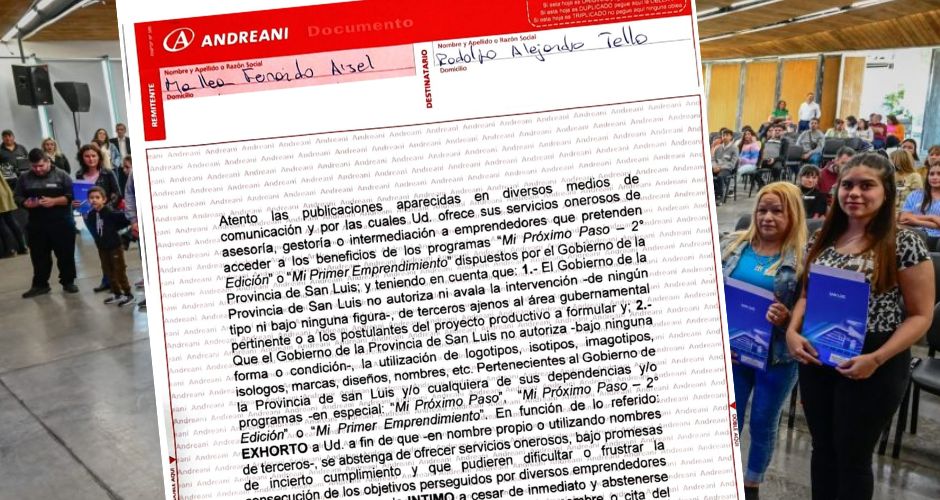 ANDREANI Documento
Si esta hoja es DUPLICADO no pegue aquí la OBLEA
Si esta hoja es TRIPLICADO no pegue ninguna oblea
Nombre y Apellido o Razón Social
Fernando
Domicilio
REMITENTE
Nombre y Apellido o Razón Social
Rodolfo Alejandro Tello
Domicilio
DESTINATARIO
Atento las publicaciones aparecidas en diversos medios de
comunicación y por las cuales Ud. ofrece sus servicios onerosos de
asesoría, gestoría o intermediación a emprendedores que pretenden
acceder a los beneficios de los programas “Mi Próximo Paso – 2°
Edición” o “Mi Primer Emprendimiento” dispuestos por el Gobierno de la
Provincia de San Luis; y teniendo en cuenta que: 1.- El Gobierno de la
Provincia de San Luis no autoriza ni avala la intervención -de ningún
tipo ni bajo ninguna figura-, de terceros ajenos al área gubernamental
pertinente o a los postulantes del proyecto productivo a formular y; 2.-
Que el Gobierno de la Provincia de San Luis no autoriza -bajo ninguna
forma o condición-, la utilización de logotipos, isotipos, imagotipos,
isologos, marcas, diseños, nombres, etc. Pertenecientes al Gobierno de
la Provincia de san Luis y/o cualquiera de sus dependencias y/o
programas -en especial: “Mi Próximo Paso”, “Mi Próximo Paso – 2°
Edición” o “Mi Primer Emprendimiento”. En función de lo referido:
EXHORTO a Ud. a fin de que -en nombre propio o utilizando nombres
de terceros-, se abstenga de ofrecer servicios onerosos, bajo promesas
de incierto cumplimiento y que pudieren dificultar o frustrar la
consecución de los objetivos perseguidos por diversos emprendedores
INTIMO a cesar de inmediato y abstenerse
o cita del
DOBLE AQUÍ
SAN LUIS